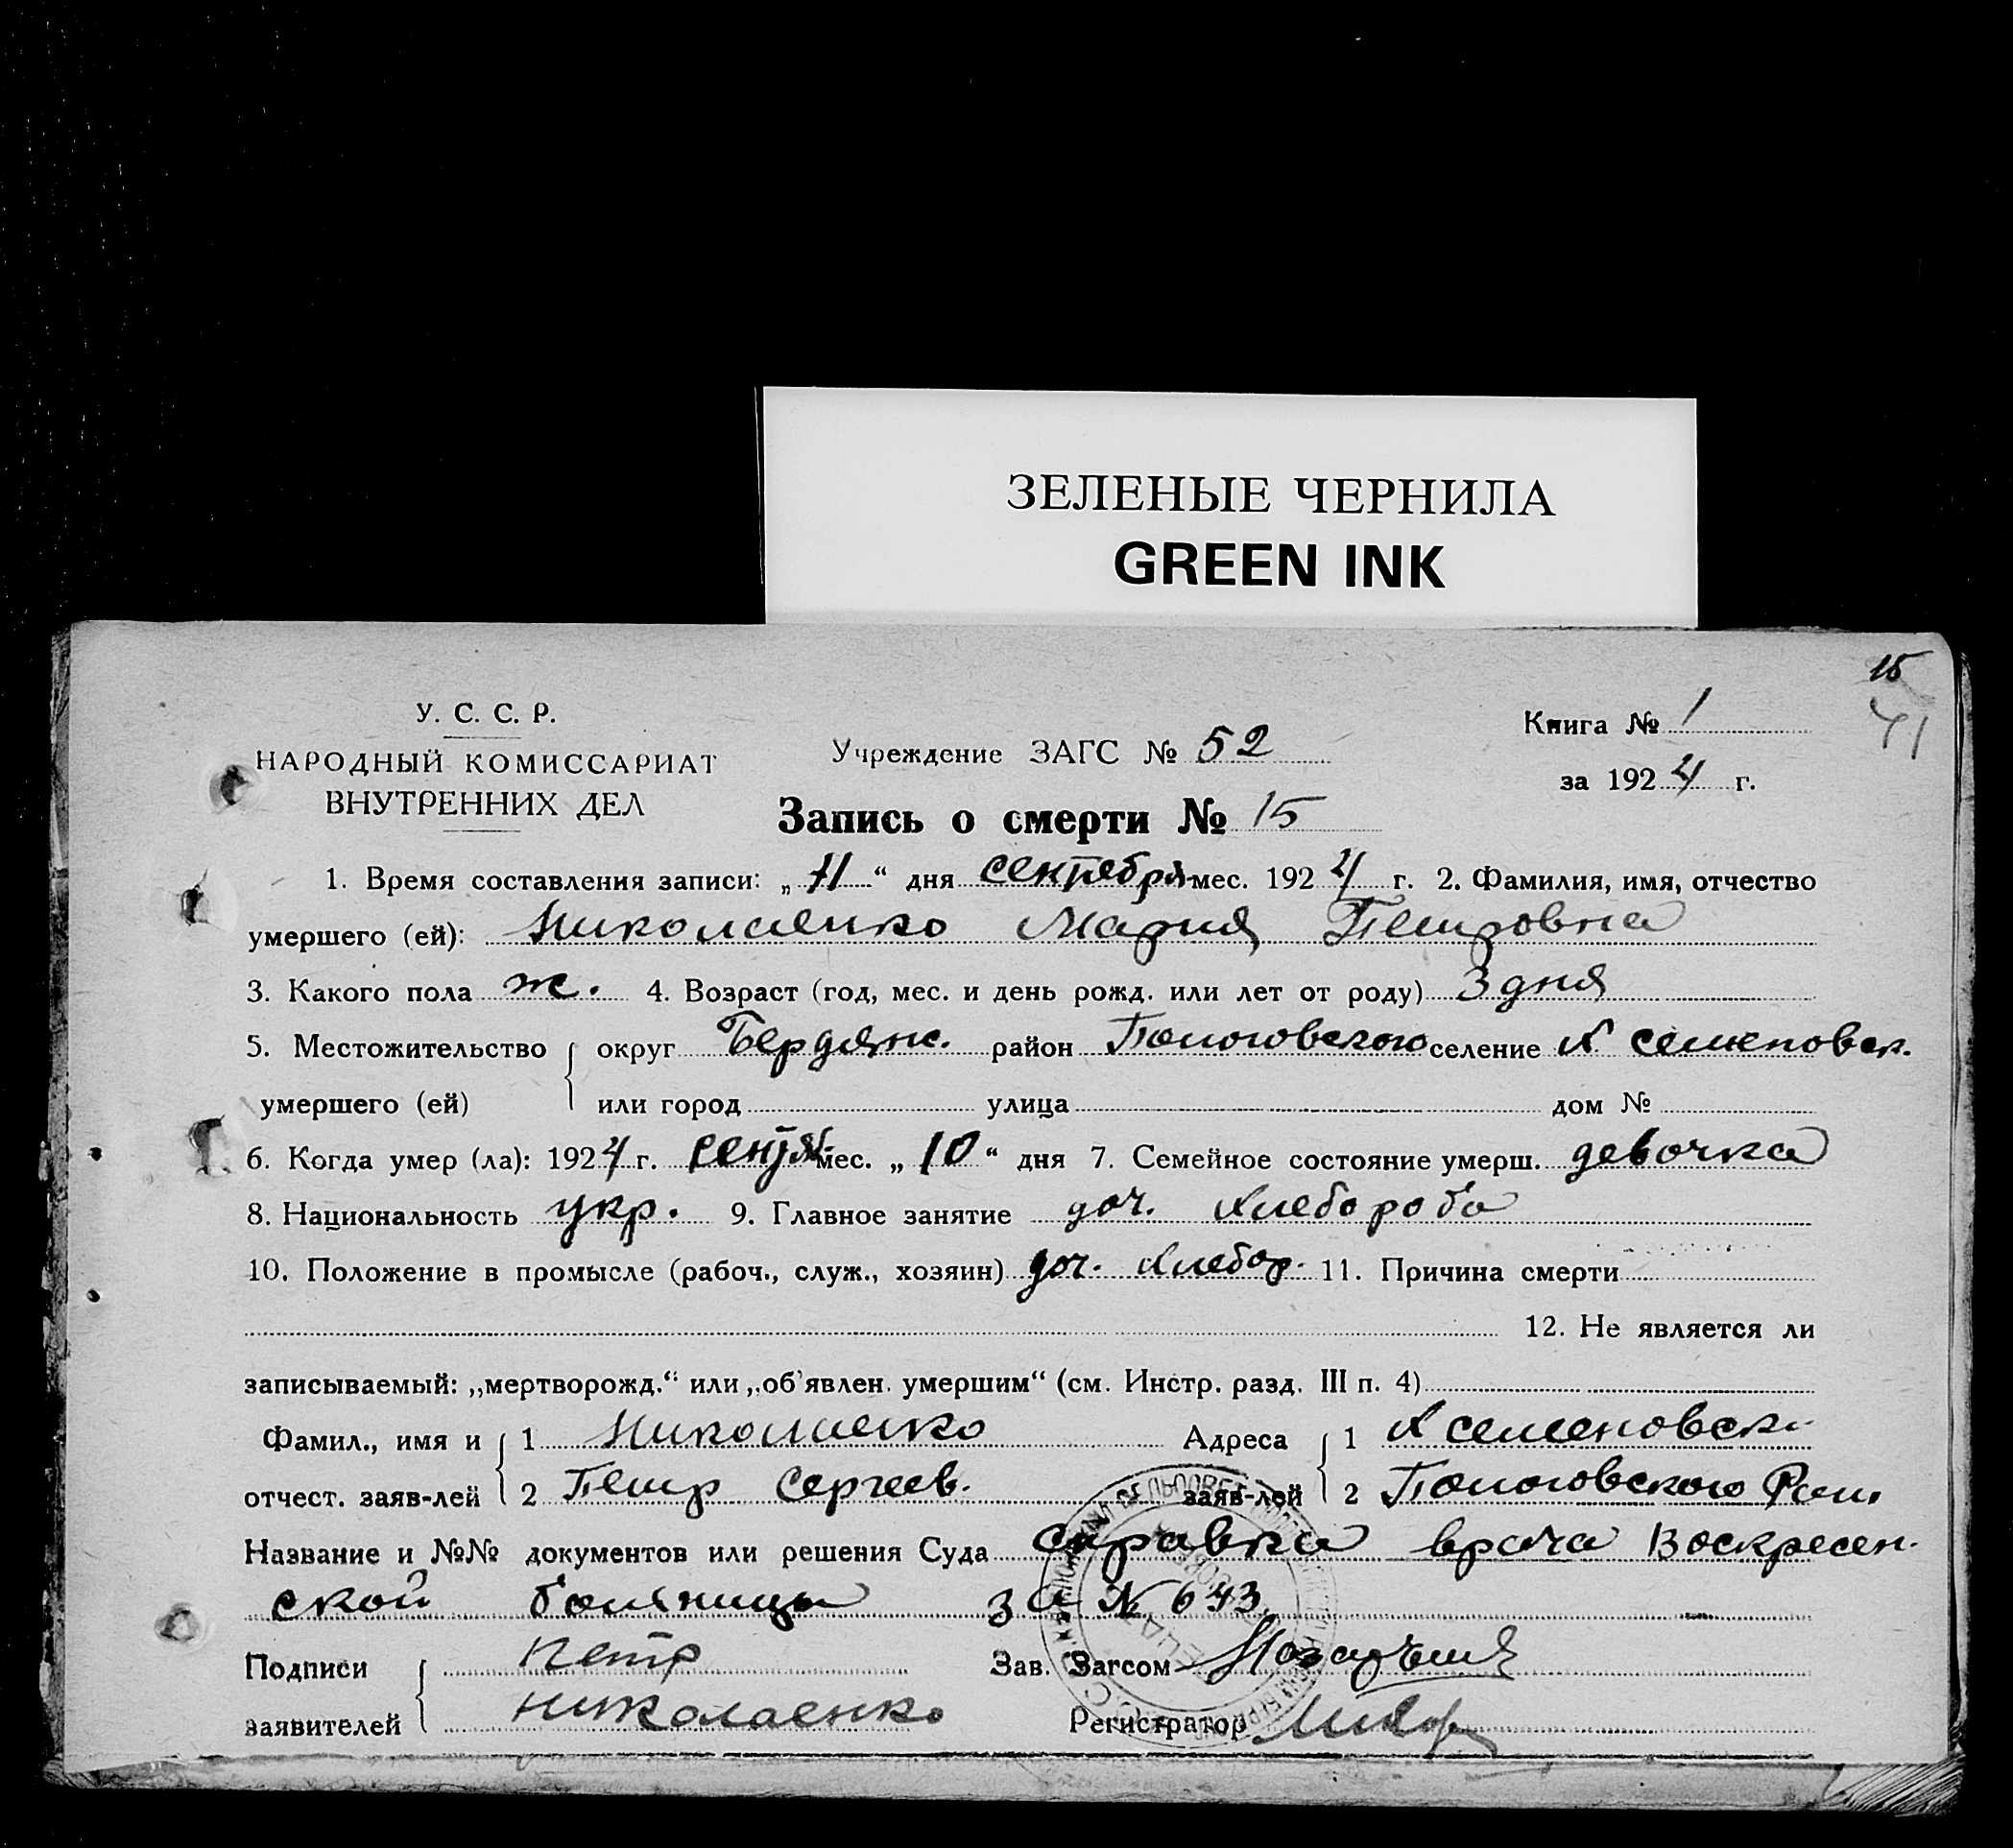 ЗЕЛЕНЫЕ ЧЕРНИЛА
GREEN INK
15
41
У. С. С. Р.
НАРОДНЫЙ КОМИССАРИАТ
ВНУТРЕННИХ ДЕЛ
Учреждение ЗАГС № 52
Книга № 1
за 1924 г.
Запись о смерти № 15
1. Время составления записи: „11“ дня сентября мес. 1924 г. 2. Фамилия, имя, отчество
умершего (ей): Николаенко Мария Петровна
3. Какого пола ж. 4. Возраст (год, мес. и день рожд. или лет от роду) 3 дня
5. Местожительство округ Бердянс. район Пологовского селение х Семеновск.
умершего (ей) или город улица дом №
6. Когда умер (ла): 1924 г. сентяб. мес. „10“ дня 7. Семейное состояние умерш. девочка
8. Национальность укр. 9. Главное занятие доч. хлебороба
10. Положение в промысле (рабоч., служ., хозяин) доч. хлебор. 11. Причина смерти
12. Не является ли
записываемый: „мертворожд.“ или „об'явлен. умершим“ (см. Инстр. разд. III п. 4)
Фамил., имя и 1 Николаенко Адреса 1 х Семеновск.
отчест. заяв-лей 2 Петр Сергеев. заяв-лей 2 Пологовского Рай.
Название и №№ документов или решения Суда справка врача Воскресен-
ской больницы за № 643
Подписи Петр Зав. Загсом
заявителей николаенко Регистратор